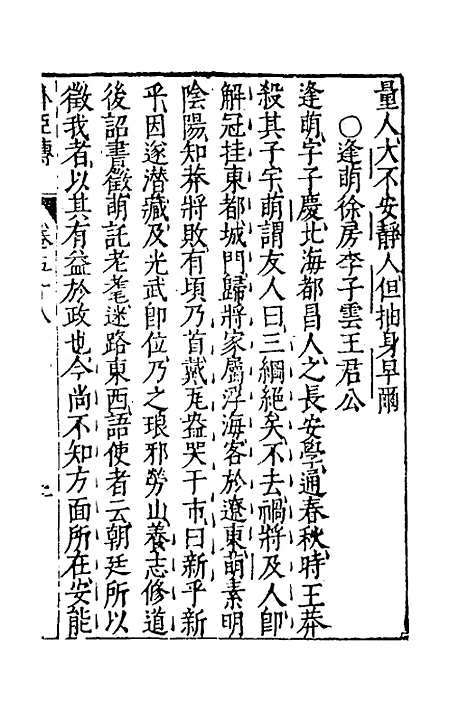 量人大不安靜人但抽身早爾
○逢萌徐房李子雲王君公
逢萌字子慶北海都昌人之長安學通春秋時王莽
殺其子宇萌謂友人曰三綱絕矣不去禍將及人即
解冠挂東都城門歸將家屬浮海客於遼東萌素明
陰陽知莽將敗有頃乃首戴瓦盎哭于市曰新乎新
乎因遂潜藏及光武即位乃之琅邪勞山養志修道
後詔書徵萌託老耄迷路東西語使者云朝廷所以
徵我者以其有益於政也今尚不知方面所在安能